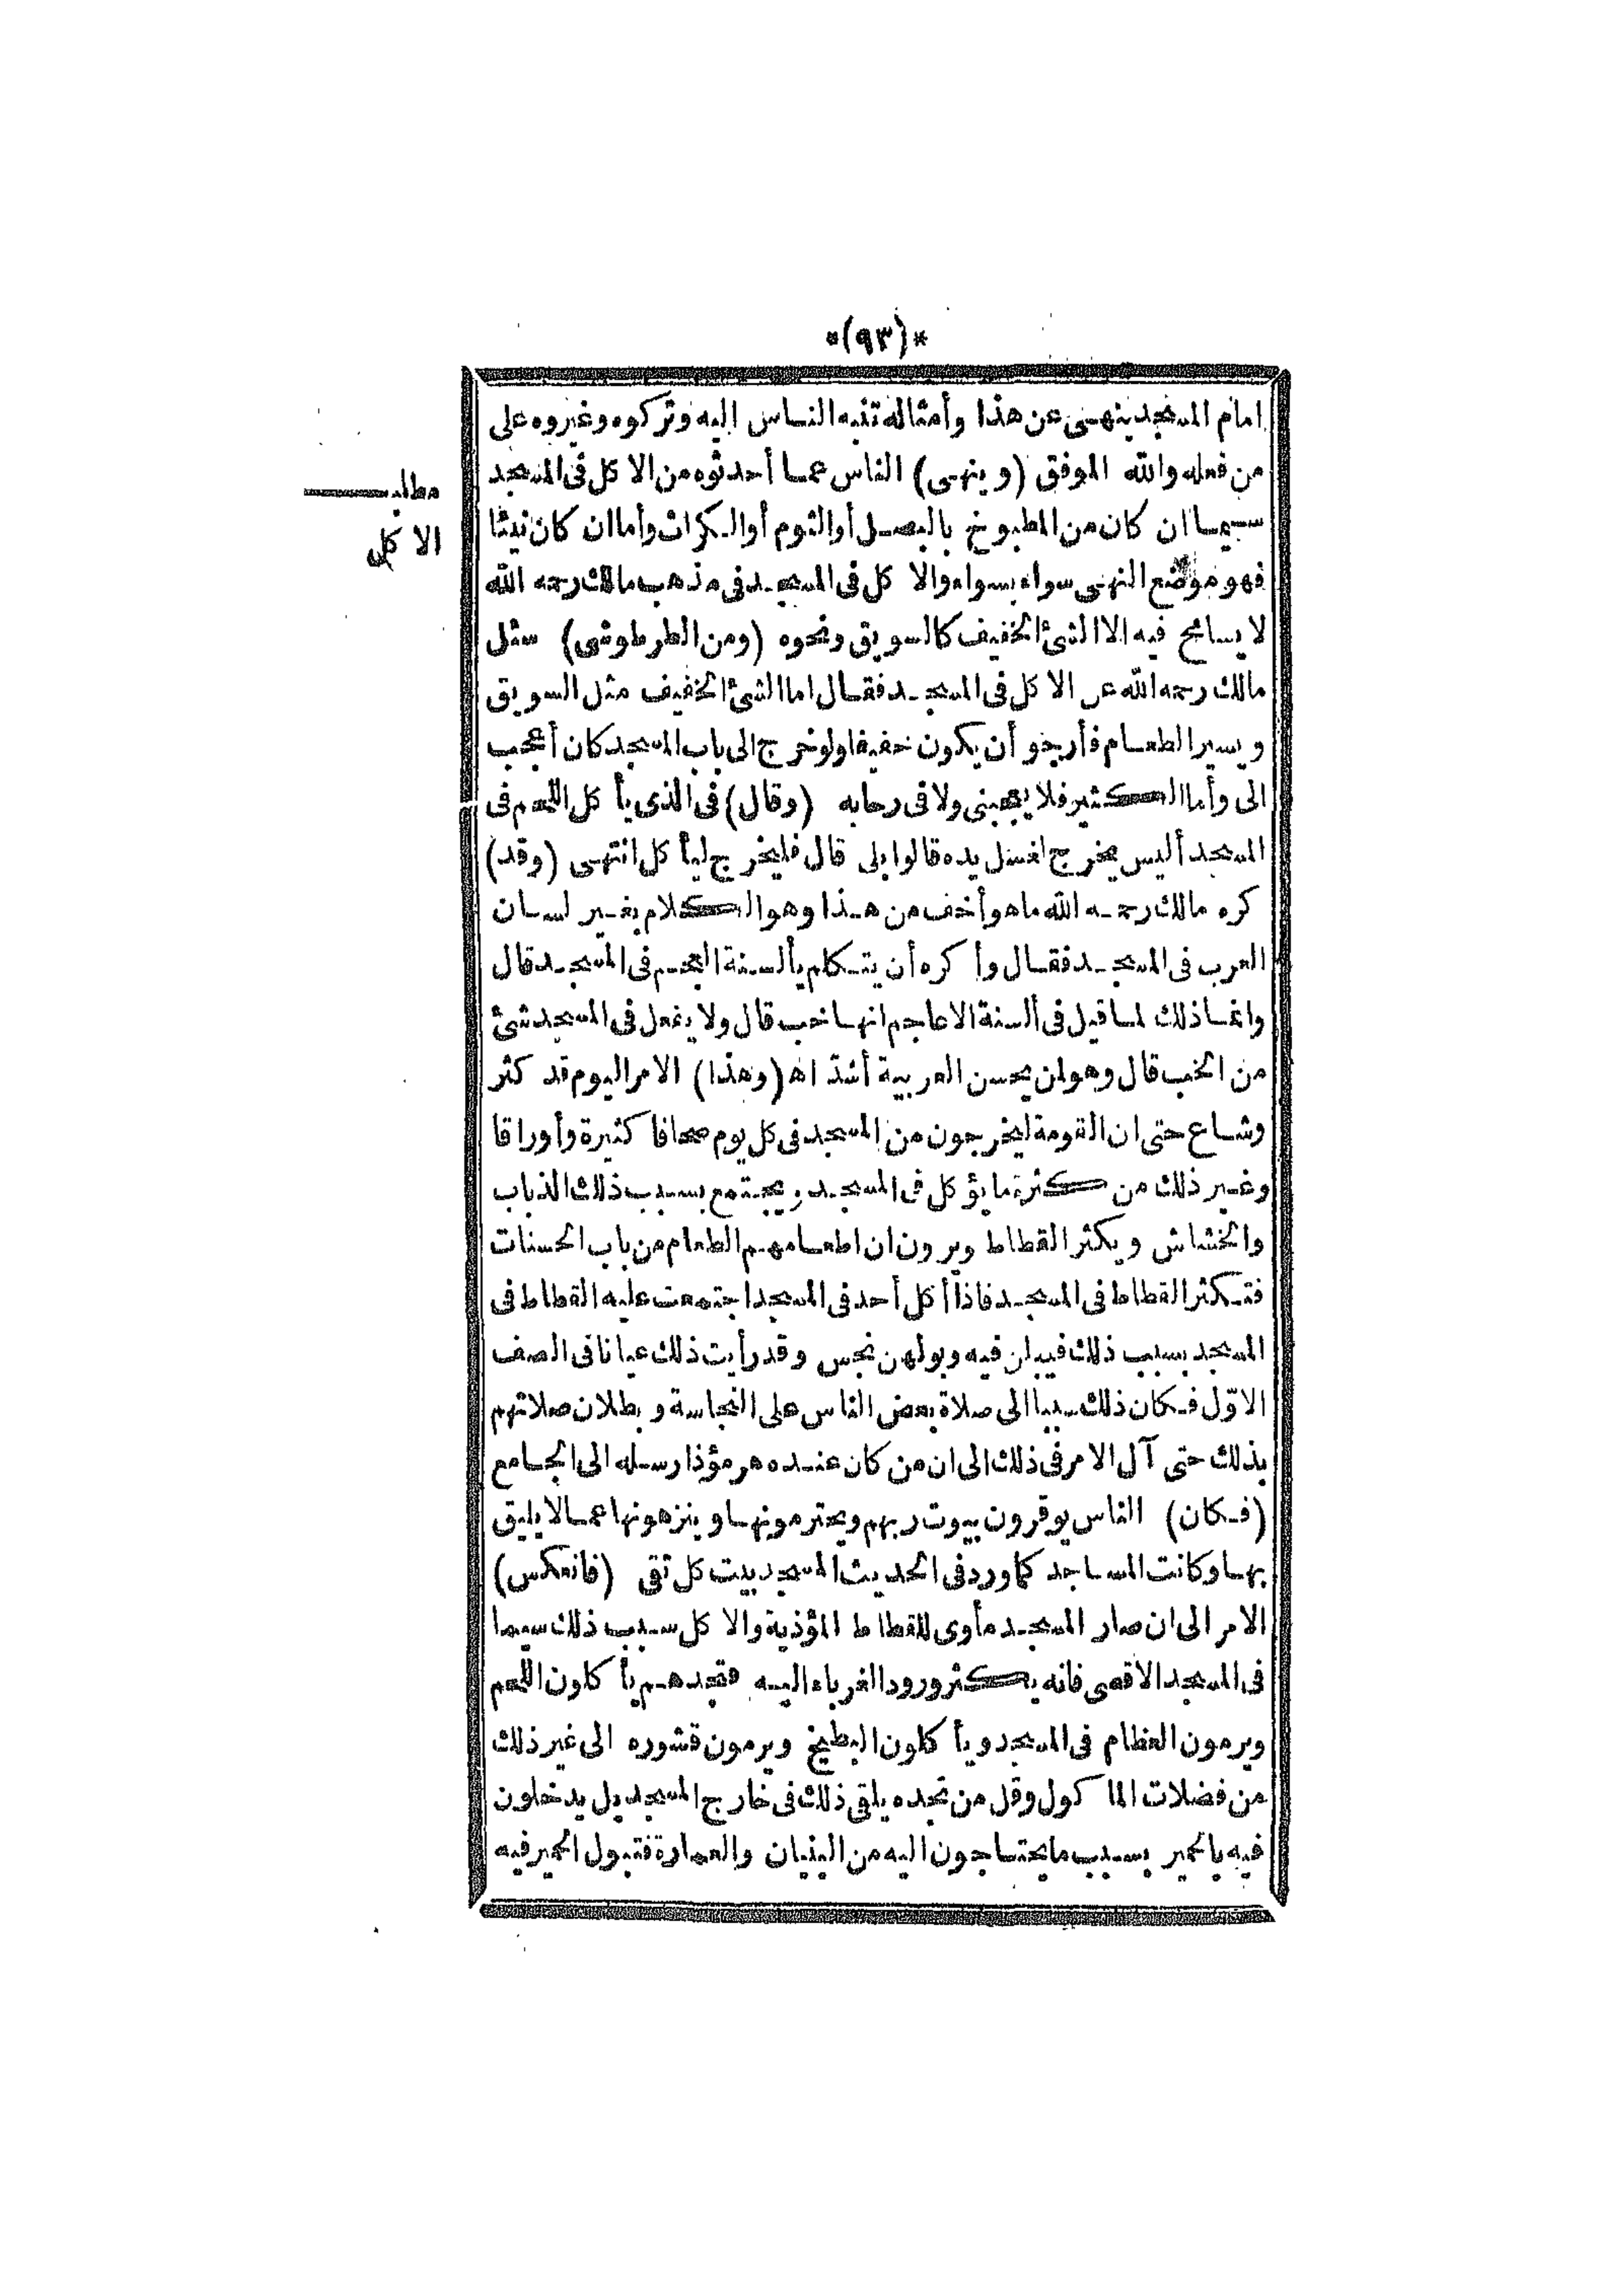 *(٩٣)*
امام المسجد ينهى عن هذا وأمثاله تنبه الناس اليه وتركوه وغيروه على
من فعله والله الموفق (وينهى) الناس عما أحدثوه من الاكل فى المسجد
سيما ان كان من المطبوخ بالبصل أو الثوم أو الكراث وأما ان كان نيئا
فهو موضع النهى سواء بسواء والاكل فى المسجد فى مذهب مالك رحمه الله
لا يسامح فيه الا الشئ الخفيف كالسويق ونحوه (ومن الطرطوشى) سئل
مالك رحمه الله عن الاكل فى المسجد فقال اما الشئ الخفيف مثل السويق
ويسير الطعام فأرجو أن يكون خفيفا ولو خرج الى باب المسجد كان أعجب
الى وأما الكثير فلا يعجبنى ولا فى رحابه (وقال) فى الذى يأكل اللحم فى
المسجد أليس يخرج لغسل يده قالوا بلى قال فليخرج ليأكل انتهى (وقد)
كره مالك رحمه الله ما هو أخف من هذا وهو الكلام بغير لسان
العرب فى المسجد فقال وأكره أن يتكلم بألسنة العجم فى المسجد قال
وانما ذلك لما قيل فى ألسنة الاعاجم انها خب قال ولا يفعل فى المسجد شئ
من الخب قال وهو لمن يحسن العربية أشد اه (وهذا) الامر اليوم قد كثر
وشاع حتى ان القومة ليخرجون من المسجد فى كل يوم صحافا كثيرة وأوراقا
وغير ذلك من كثرة ما يؤكل فى المسجد ويجتمع بسبب ذلك الذباب
والخشاش ويكثر القطاط ويرون ان اطعامهم الطعام من باب الحسنات
فتكثر القطاط فى المسجد فاذا أكل أحد فى المسجد اجتمعت عليه القطاط فى
المسجد بسبب ذلك فيبلن فيه وبولهن نجس وقد رأيت ذلك عيانا فى الصف
الاوّل فكان ذلك سببا الى صلاة بعض الناس على النجاسة وبطلان صلاتهم
بذلك حتى آل الامر فى ذلك الى ان من كان عنده هر مؤذ ارسله الى الجامع
(فكان) الناس يوقرون بيوت ربهم ويحترمونها وينزهونها عما لا يليق
بها وكانت المساجد كما ورد فى الحديث المسجد بيت كل تقى (فانعكس)
الامر الى ان صار المسجد مأوى للقطاط المؤذية والاكل سبب ذلك سيما
فى المسجد الاقصى فانه يكثر ورود الغرباء اليه فتجدهم يأكلون اللحم
ويرمون العظام فى المسجد ويأكلون البطيخ ويرمون قشوره الى غير ذلك
من فضلات المأكول وقل من تجده يلقى ذلك فى خارج المسجد بل يدخلون
فيه بالحمير بسبب ما يحتاجون اليه من البنيان والعمارة فتبول الحمير فيه
مطلب
الاكل